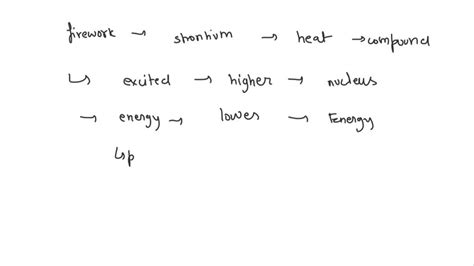 firework → strontium → heat → compound
↳ excited → higher → nucleus
→ energy → lowes → Eenergy
↳ sp